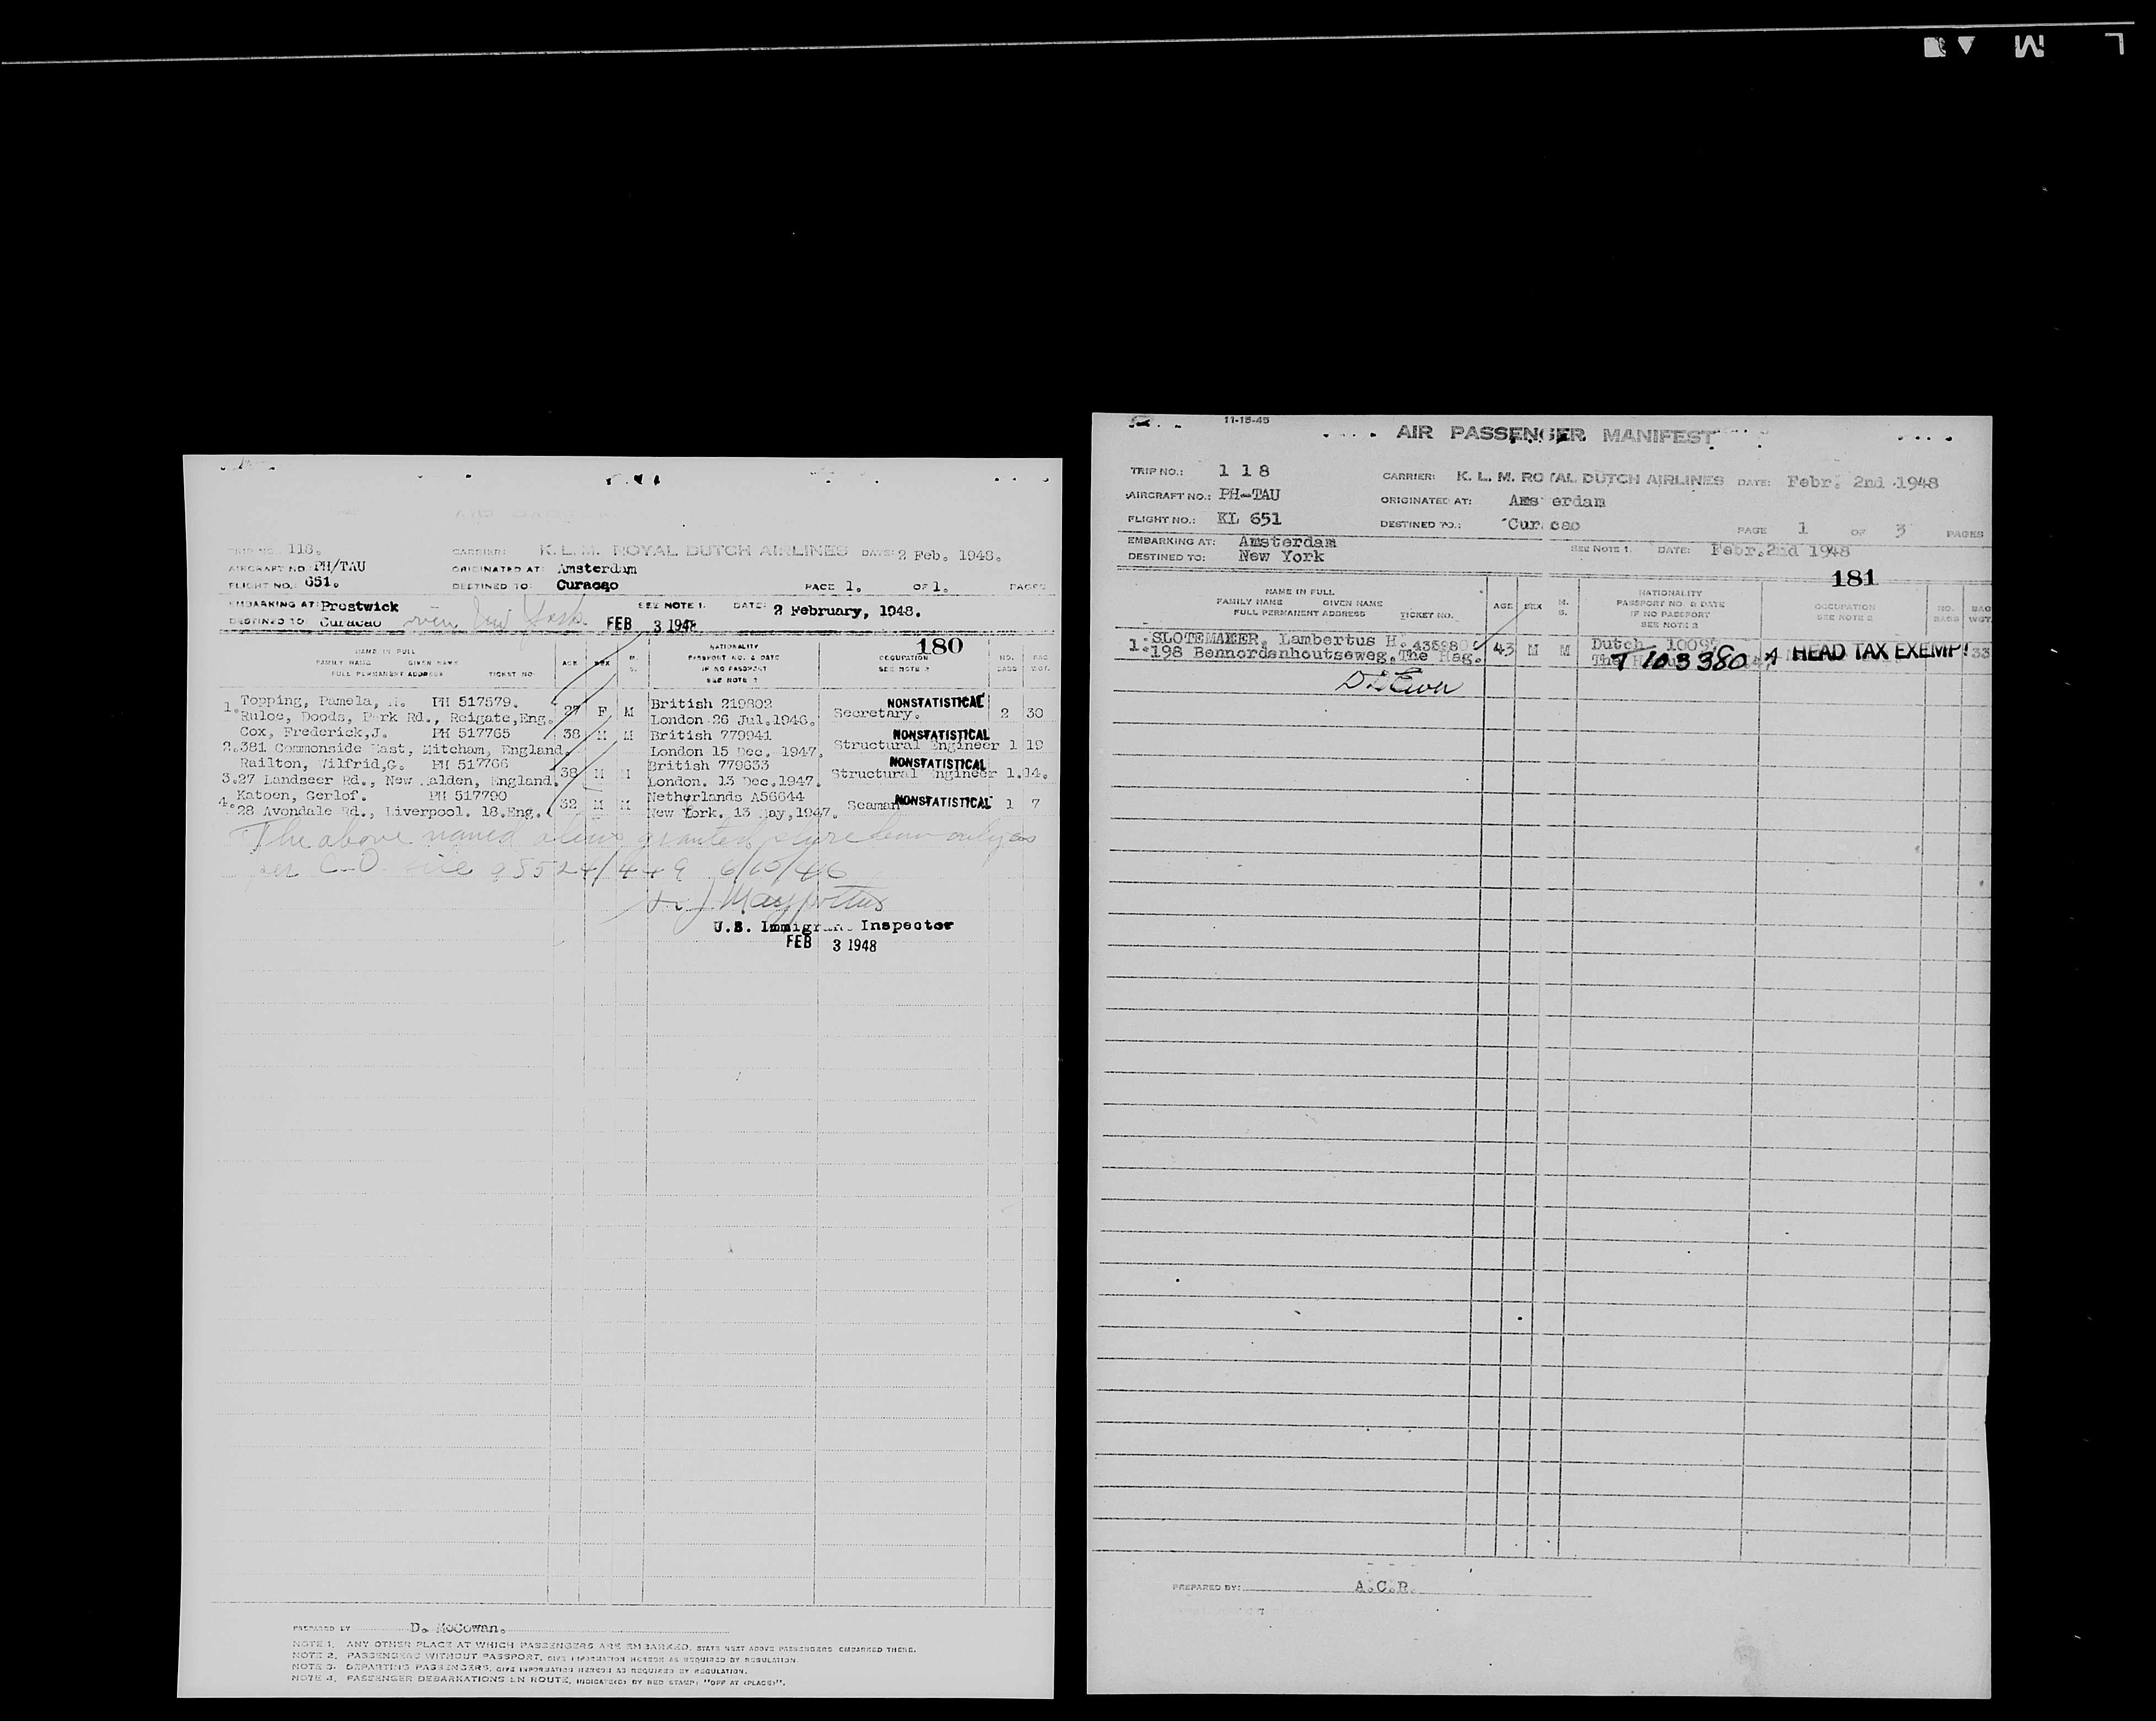 TRIP NO. 118.
CARRIER: K. L. M. ROYAL DUTCH AIRLINES DATE: 2 Feb. 1948.
AIRCRAFT NO. PH/TAU ORIGINATED AT: Amsterdam
FLIGHT NO. 651. DESTINED TO: Curaçao PAGE 1. OF 1. PAGES
EMBARKING AT: Prestwick SEE NOTE 1. DATE: 2 February, 1948.
DESTINED TO Curacao New York. FEB 3 1948
180
NAME IN FULL
FAMILY NAME GIVEN NAME
FULL PERMANENT ADDRESS TICKET NO.
AGE SEX M. S.
NATIONALITY
PASSPORT NO. & DATE
IF NO PASSPORT
SEE NOTE 2
OCCUPATION
SEE NOTE 3
NO. BAGS BAG WGT.
Topping, Pamela, PH 517579. British 219802 NONSTATISTICAL
1. Ruloe, Doods, Park Rd., Reigate, Eng. 27 F M London 26 Jul. 1946. Secretary. 2 30
Cox, Frederick, J. PH 517765 38 M M British 779941 NONSTATISTICAL
2. 381 Commonside East, Mitcham, England. London 15 Dec. 1947. Structural Engineer 1 19
Railton, Wilfrid, G. PH 517766 British 779633 NONSTATISTICAL
3. 27 Landseer Rd., New alden, England. 38 M M London. 13 Dec, 1947. Structural Engineer 1. 14.
Katoen, Gerlof. PH 517790 Netherlands A56644
4. 28 Avondale Rd., Liverpool. 18. Eng. 32 M M New York. 13 May, 1947. Seaman NONSTATISTICAL 1 7
The above named aliens granted only as
per C.O. file 98524/449 6/10/46
U.S. Immigrant Inspector
FEB 3 1948
PREPARED BY D. McCowan.
NOTE 1. ANY OTHER PLACE AT WHICH PASSENGERS ARE EMBARKED, STATE NEXT ABOVE PASSENGERS EMBARKED THERE.
NOTE 2. PASSENGERS WITHOUT PASSPORT, GIVE INFORMATION HEREON AS REQUIRED BY REGULATION.
NOTE 3. DEPARTING PASSENGERS, GIVE INFORMATION HEREON AS REQUIRED BY REGULATION.
NOTE 4. PASSENGER DEBARKATIONS EN ROUTE, INDICATE(D) BY RED STAMP: "OFF AT (PLACE)".
11-15-45
AIR PASSENGER MANIFEST
TRIP NO.: 118 CARRIER: K. L. M. ROYAL DUTCH AIRLINES DATE: Febr. 2nd 1948
AIRCRAFT NO.: PH-TAU ORIGINATED AT: Ams erdam
FLIGHT NO.: KL 651 DESTINED TO.: Cur cao PAGE 1 OF 3 PAGES
EMBARKING AT: Amsterdam SEE NOTE 1. DATE: Febr. 2nd 1948
DESTINED TO: New York
181
NAME IN FULL
FAMILY NAME GIVEN NAME
FULL PERMANENT ADDRESS TICKET NO.
AGE SEX M. S.
NATIONALITY
PASSPORT NO. & DATE
IF NO PASSPORT
SEE NOTE 3
OCCUPATION
SEE NOTE 2
NO. BAGS BAG WGT.
1. SLOTEMAKER, Lambertus H. 435980 43 M M Dutch
198 Bennordenhoutseweg. The Hag. T 103380 A HEAD TAX EXEMPT 33
PREPARED BY: A.C.R.